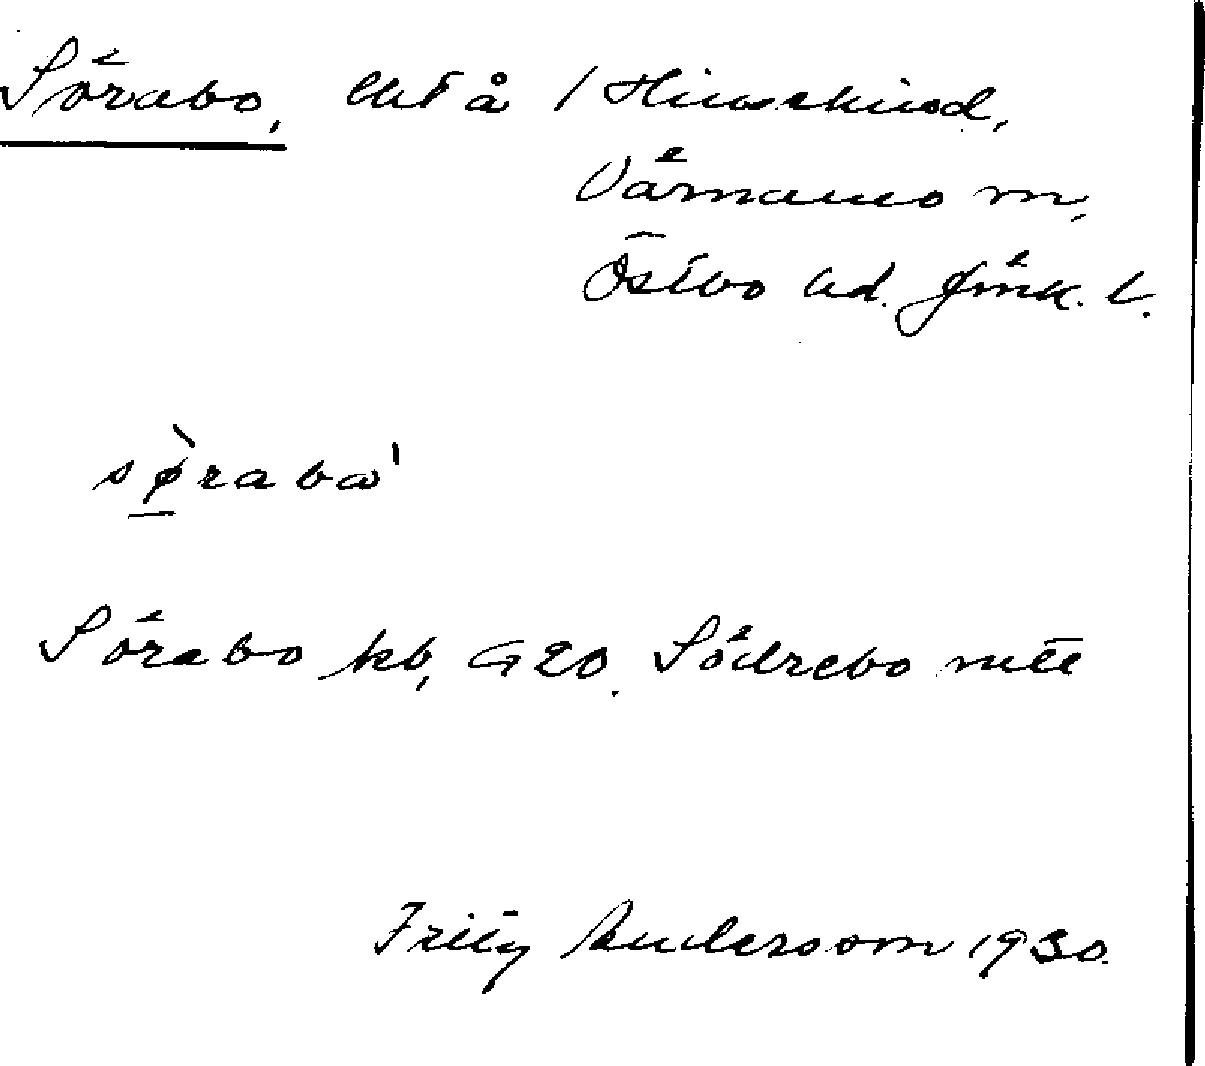 Sörabo, lht å 1 Hinsekind,
Värnamo m,
Östbo hd. Jönk. l.
sø̀rabω'
Sörabo kb, G20. Södrebo mtl
Fritz Andersson 1930.